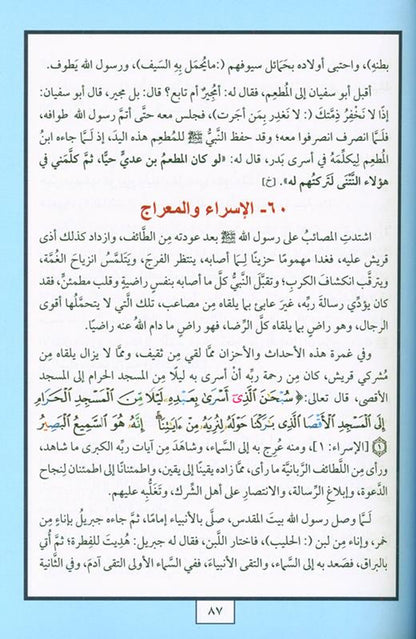 بطنه)، واحتبى أولاده بحمائل سيوفهم (:مايُحمَل بِهِ السَيف)، ورسول الله يَطوف.
أقبل أبو سفيان إلى المُطعِم، فقال له: أمُجيرٌ أم تابع؟ قال: بل مجير، قال أبو سفيان:
إذًا لا نَخْفِرُ ذِمَّتكَ (: لا نَغدِر بِمَن أجرت)، فجلس معه حتَّى أتمَّ رسول الله طوافه،
فلمَّا انصرف انصرفوا معه؛ وقد حفظ النَّبيُّ ﷺ للمُطعِم هذه اليدَ، إذ لـمَّا جاءه ابنُ
المُطعِم لِيكلِّمَهُ في أسرى بَدر، قال له: «لو كان المطعمُ بن عديٍّ حيًّا، ثمَّ كلَّمني في
هؤلاء النَّتْنَى لَتركتُهم له». [خ]
٦٠- الإسراء والمعراج
اشتدتِ المصائبُ على رسول الله ﷺ بعد عودته مِن الطَّائف، وازداد كذلك أذى
قريش عليه، فغدا مهمومًا حزينًا لِـمَا أصابه، ينتظر الفرجَ، ويَتلمَّسُ انزياحَ الغُمَّة،
ويترقَّب انكشافَ الكربِ؛ وتقبَّل النَّبيُّ كلَّ ما أصابه بنفسٍ راضيةٍ وقلبٍ مطمئنٍّ، فقد
كان يؤدِّي رسالةَ ربِّه، غيرَ عابئٍ بما يلقاه مِن مصاعب، تلك الَّتي لا يتحمَّلُها أقوى
الرجال، وهو راضٍ بما يلقاه كلَّ الرِّضا، فهو راضٍ ما دام اللهُ عنه راضيًا.
وفي غمرة هذه الأحداث والأحزان ممَّا لقي مِن ثقيف، وممَّا لا يزال يلقاه مِن
مُشركي قريش، كان مِن رحمة ربِّه أنْ أسرى به ليلًا مِن المسجد الحرام إلى المسجد
الأقصى، قال تعالى: ﴿سُبْحَٰنَ ٱلَّذِىٓ أَسْرَىٰ بِعَبْدِهِۦ لَيْلًا مِّنَ ٱلْمَسْجِدِ ٱلْحَرَامِ
إِلَى ٱلْمَسْجِدِ ٱلْأَقْصَا ٱلَّذِى بَٰرَكْنَا حَوْلَهُۥ لِنُرِيَهُۥ مِنْ ءَايَٰتِنَآ ۚ إِنَّهُۥ هُوَ ٱلسَّمِيعُ ٱلْبَصِيرُ
١﴾ [الإسراء: ١]، ومنه عُرِج به إلى السَّماء، وشاهَدَ مِن آيات ربِّه الكبرى ما شاهد،
ورأى مِن اللَّطائف الرَّبَّانيَّة ما رأى، ممَّا زاده يقينًا إلى يقين، واطمئنانًا إلى اطمئنان لِنجاح
الدَّعوة، وإبلاغِ الرِّسالة، والانتصارِ على أهل الشِّرك، وتَغلُّبِه عليهم.
لَـمَّا وصل رسول الله بيتَ المقدس، صلَّى بالأنبياء إمامًا، ثمَّ جاءه جبريلُ بإناءٍ مِن
خمر، وإناء مِن لبن (: الحليب)، فاختار اللَّبن، فقال له جبريل: هُدِيتَ للفِطرة؛ ثمَّ أُتي
بالبراق، فصَعد به إلى السَّماء، والتقى الأنبياءَ، ففي السَّماء الأولى التقى آدمَ، وفي الثَّانية
٨٧